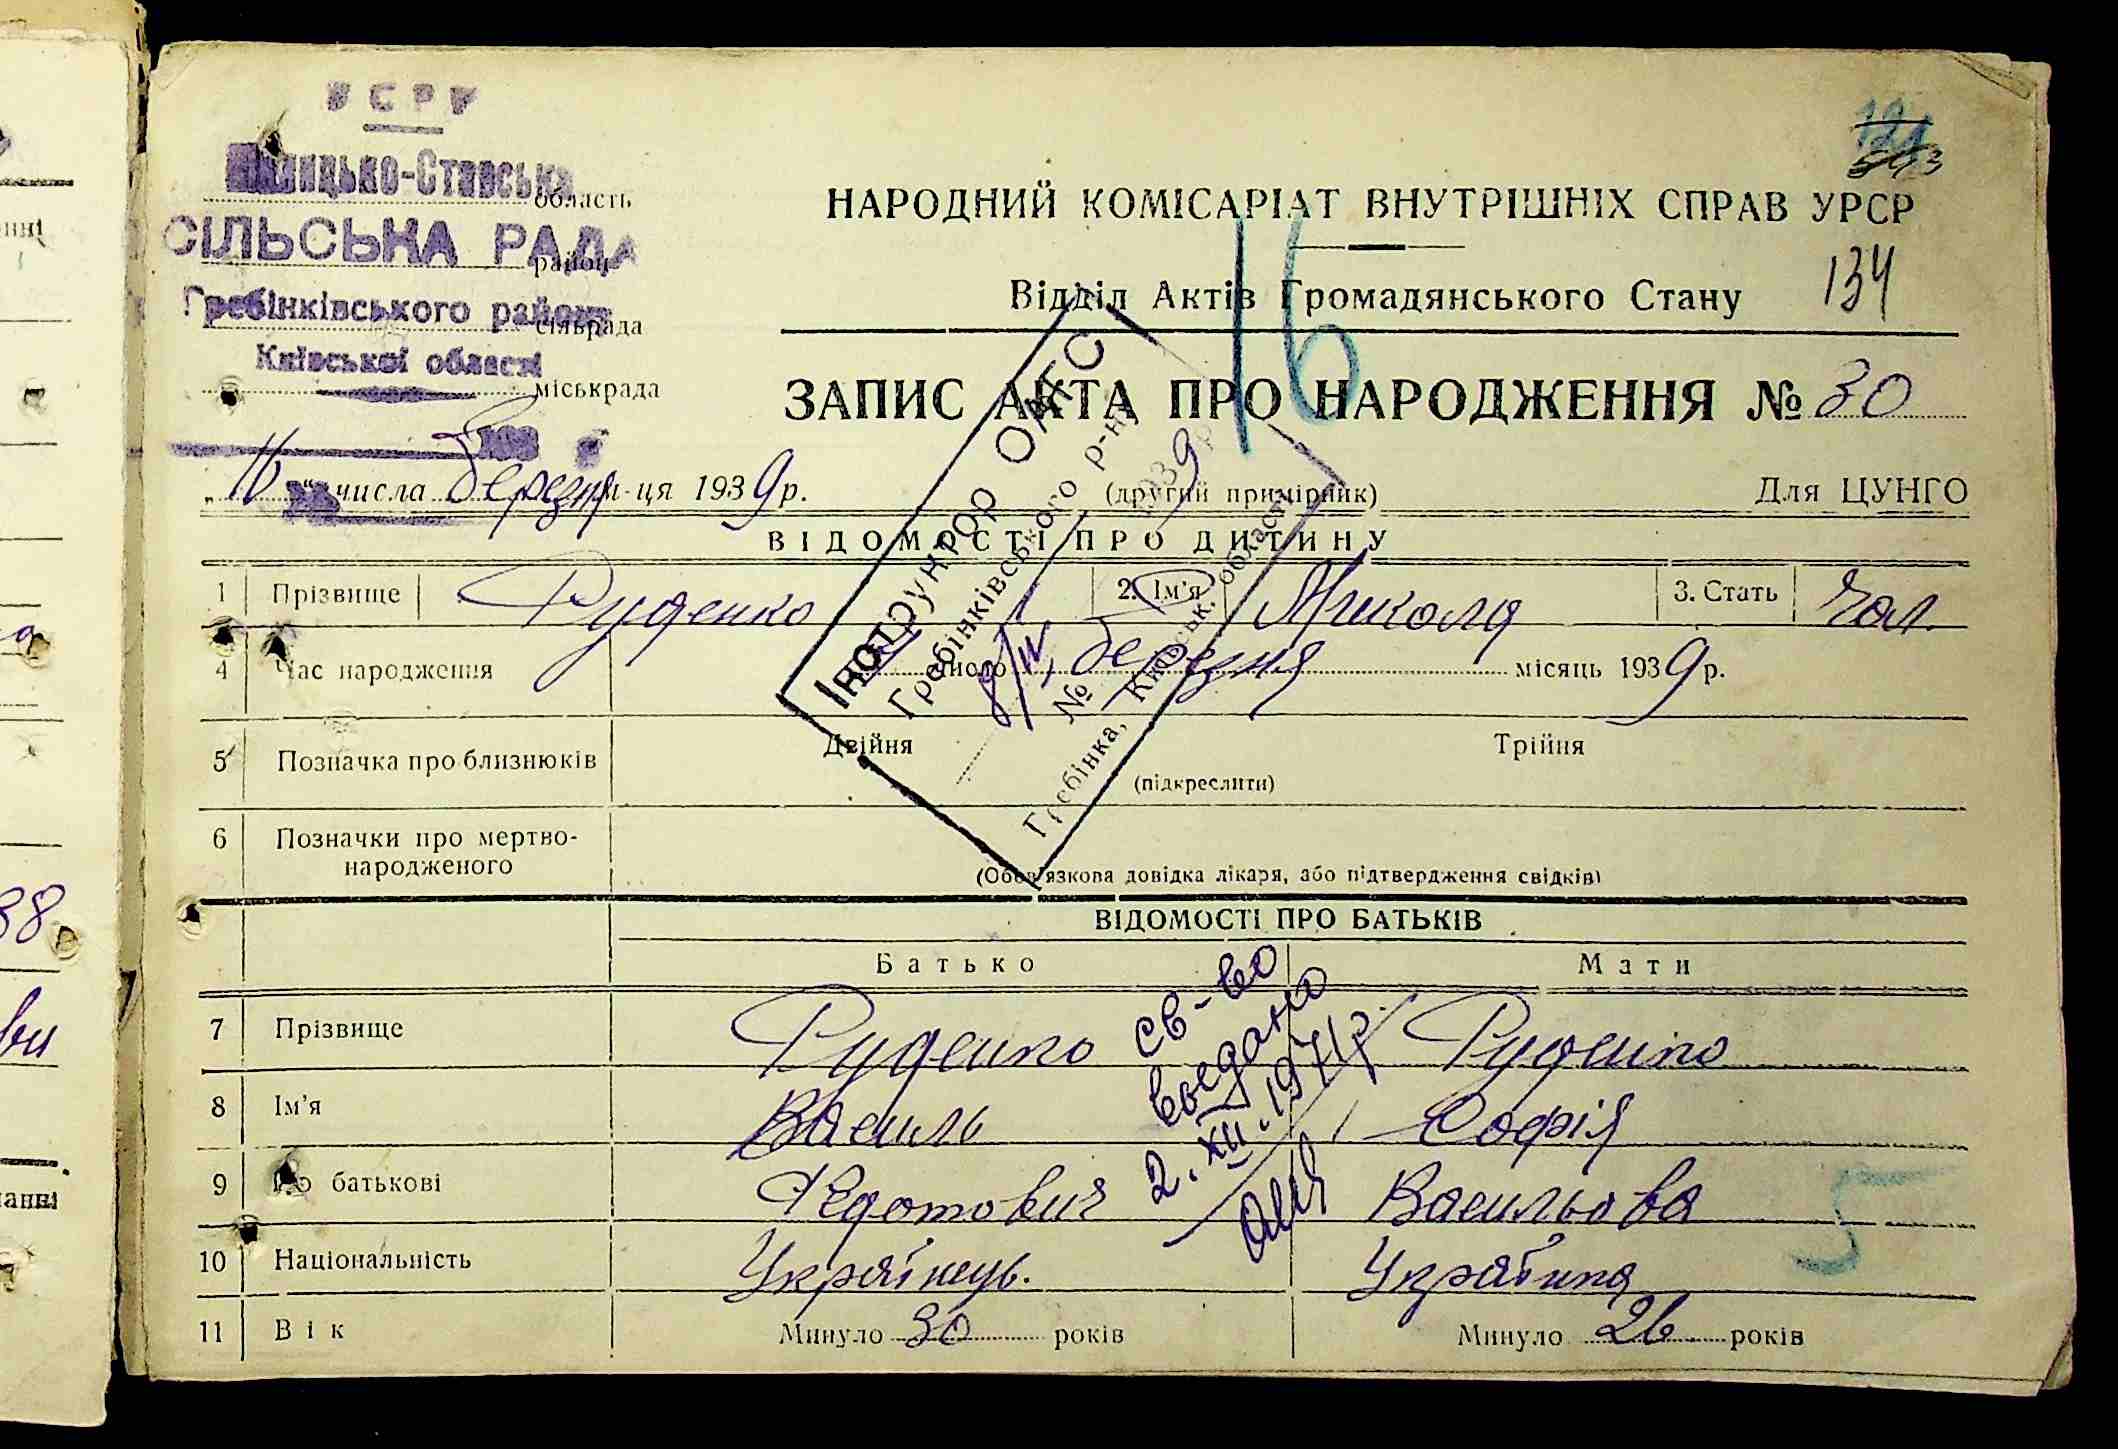 УСРР
область
СІЛЬСЬКА РАДА
район
Гребінківського району
сільрада
Київської області
міськрада
193
"16" числа березня м-ця 1939р.
121
593
НАРОДНИЙ КОМІСАРІАТ ВНУТРІШНІХ СПРАВ УРСР
134
Відділ Актів Громадянського Стану
16
ЗАПИС АКТА ПРО НАРОДЖЕННЯ № 30
(другий примірник)
Для ЦУНГО
Інструктор ОАГС
Гребінківського р-ну
8/IV 1939р
№
Гребінка, Київськ. області
ВІДОМОСТІ ПРО ДИТИНУ
1 Прізвище Руденко 2. Ім'я Микола 3. Стать Чол.
4 Час народження число березня місяць 1939р.
5 Позначка про близнюків Двійня Трійня
(підкреслити)
6 Позначки про мертво-
народженого
(Обов'язкова довідка лікаря, або підтвердження свідків)
ВІДОМОСТІ ПРО БАТЬКІВ
Батько Мати
7 Прізвище Руденко Руденко
8 Ім'я Василь Софія
9 По батькові Федотович Васильова
10 Національність Українець. Українка
11 Вік Минуло 30 років Минуло 26 років
св-во
выдано
2.XII.1971р.
5